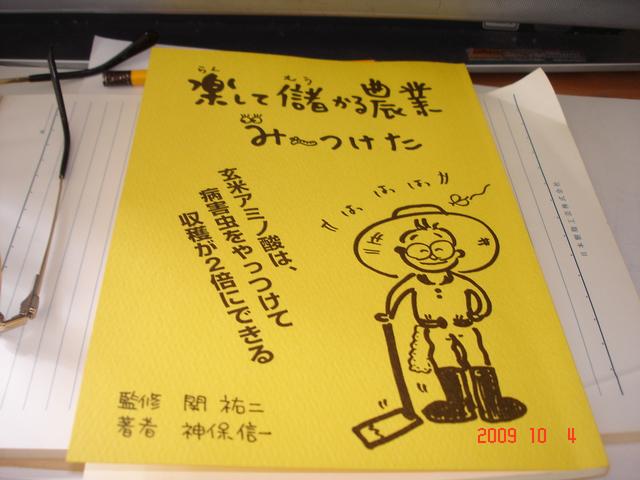 らく もう
楽して儲かる農業
み〜つけた
玄米アミノ酸は、
病害虫をやっつけて
収穫が2倍にできる
はっはっはっ
監修 関 祐二
著者 神保信一
2009 10 4